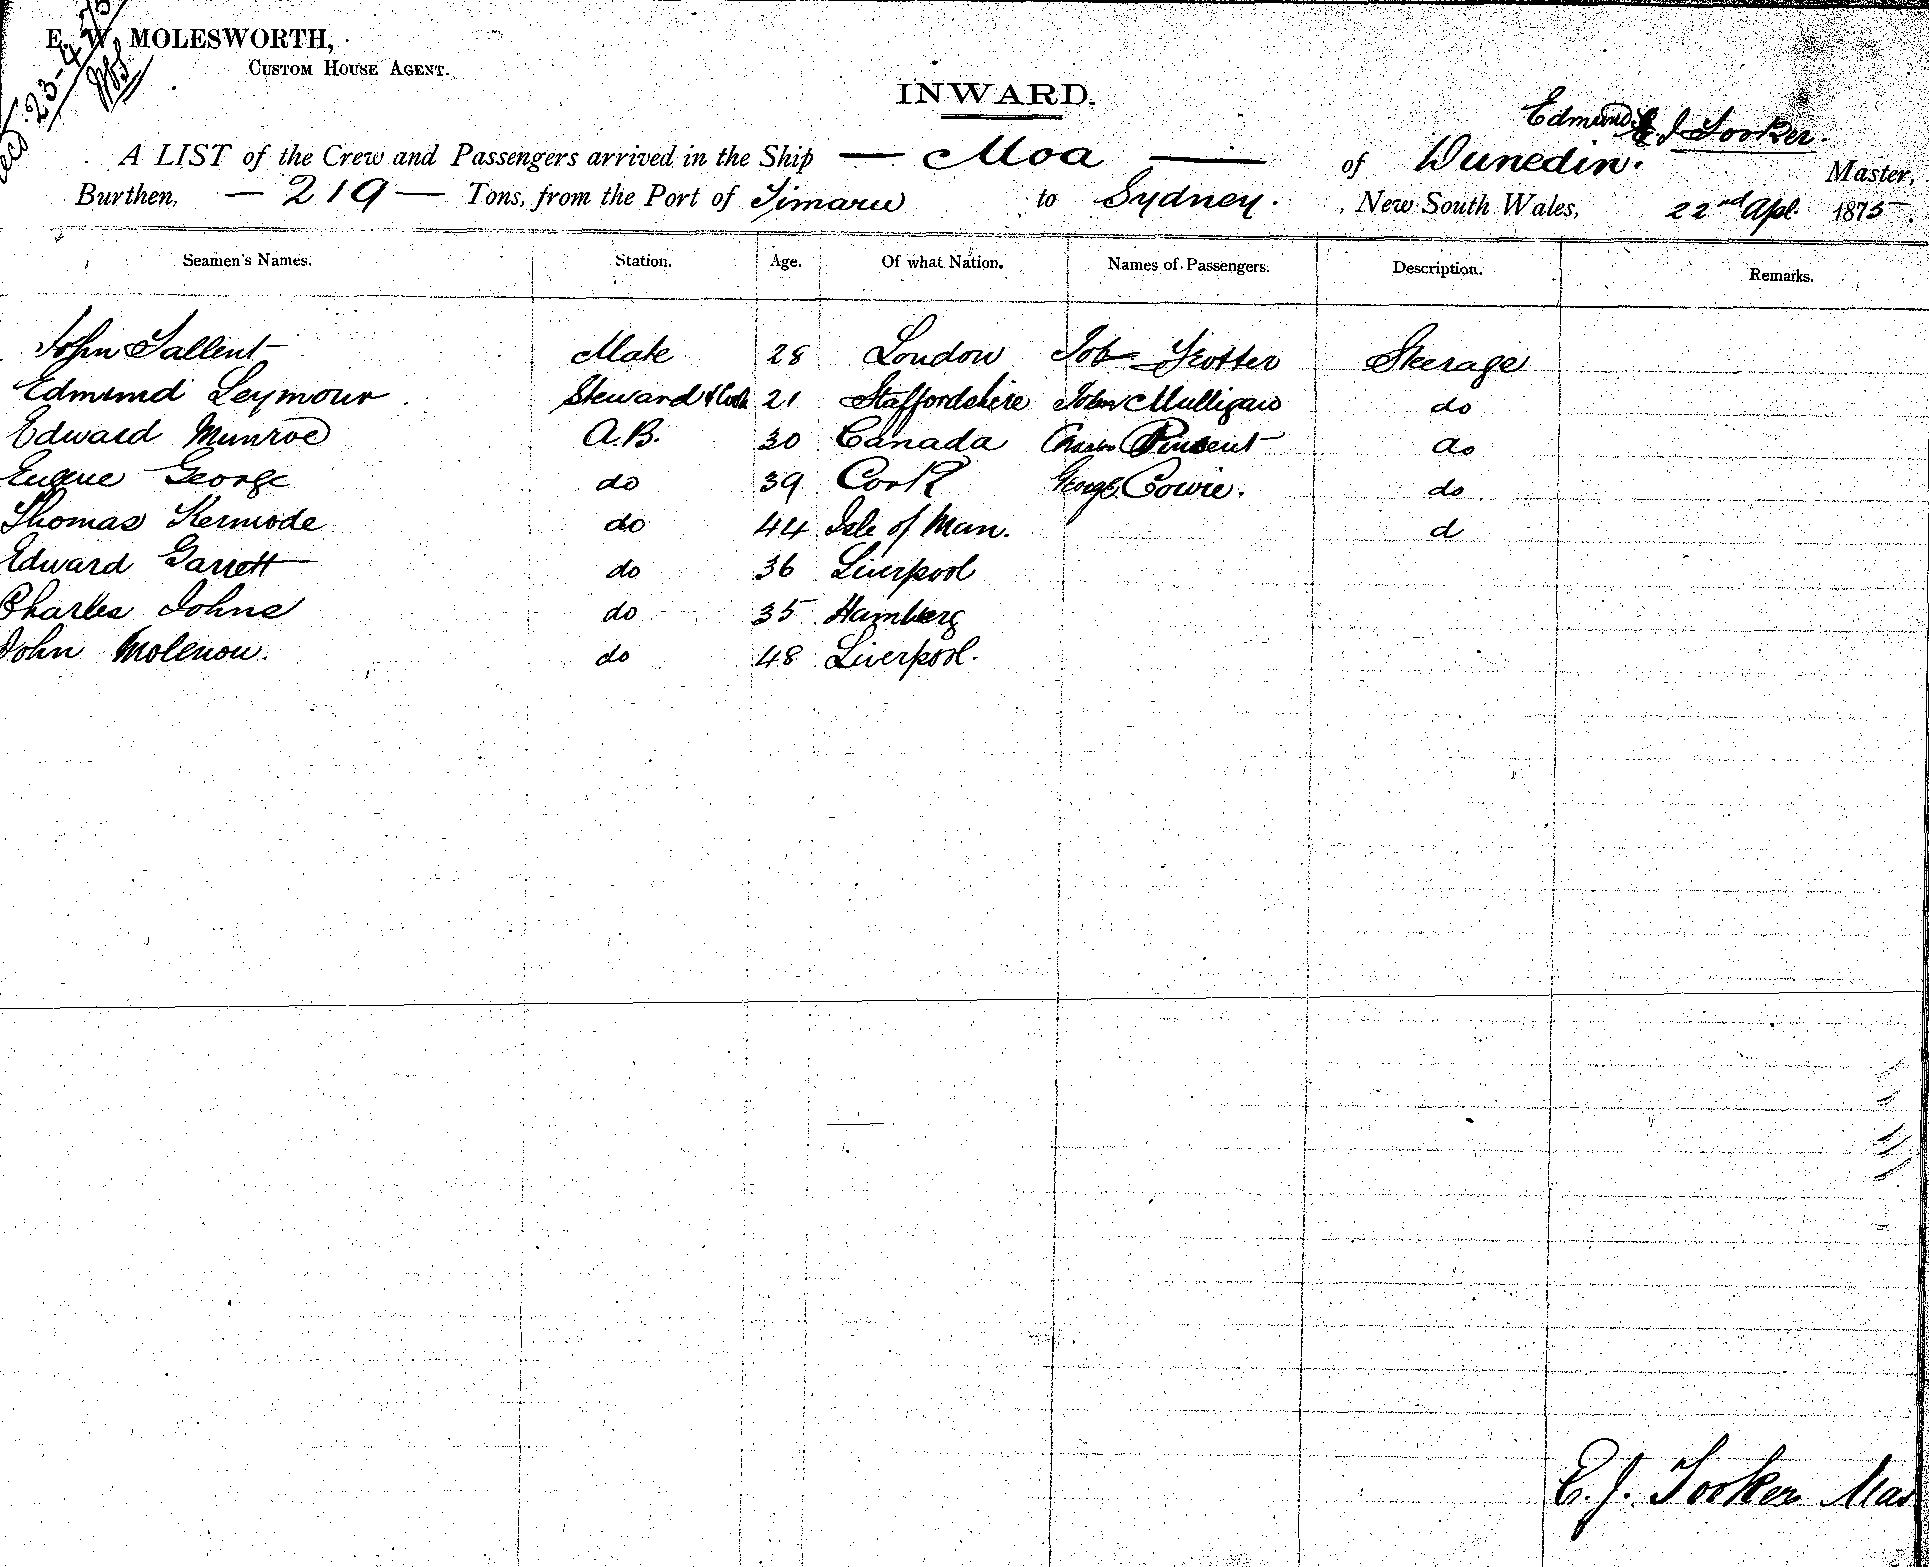 recd 23-4-75
E. W. MOLESWORTH,
CUSTOM HOUSE AGENT.
INWARD.
Edmund E J Tooker.
A LIST of the Crew and Passengers arrived in the Ship — Moa — of Dunedin. Master,
Burthen, — 219 — Tons, from the Port of Timaru to Sydney. New South Wales, 22nd Apl. 1875.
Seamen's Names. Station. Age. Of what Nation. Names of Passengers. Description. Remarks.
John Tallent Mate 28 London Job Trotter Steerage
Edmund Seymour Steward & Cook 21 Staffordshire John Mulligan do
Edward Munroe A.B. 30 Canada Pinsent do
Eugene George do 39 Cork George Cowie. do
Thomas Kermode do 44 Isle of Man. d
Edward Garrett do 36 Liverpool
Charles Johns do 35 Hamberg
John do 48 Liverpool.
E.J. Tooker Mas